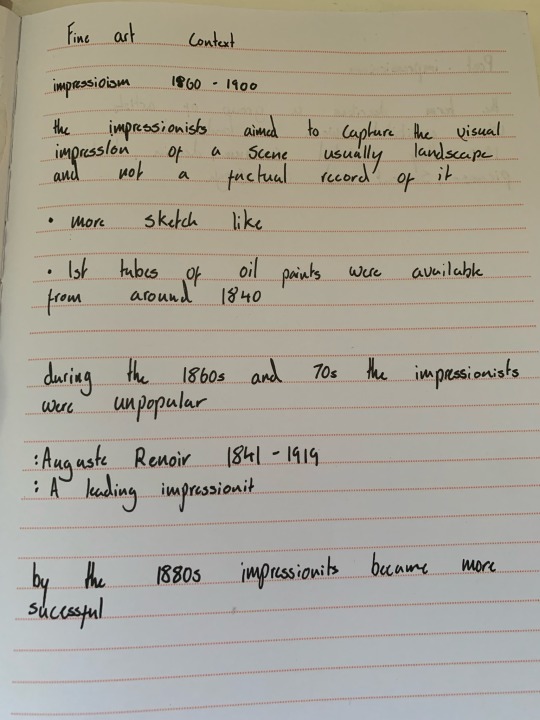 Fine art Context
impressioism 1860 - 1900
the impressionists aimed to capture the visual
impression of a scene usually landscape
and not a factual record of it
• more sketch like
• 1st tubes of oil paints were available
from around 1840
during the 1860s and 70s the impressionists
were unpopular
: Auguste Renoir 1841 - 1919
: A leading impressionit
by the 1880s impressionits became more
sucessful